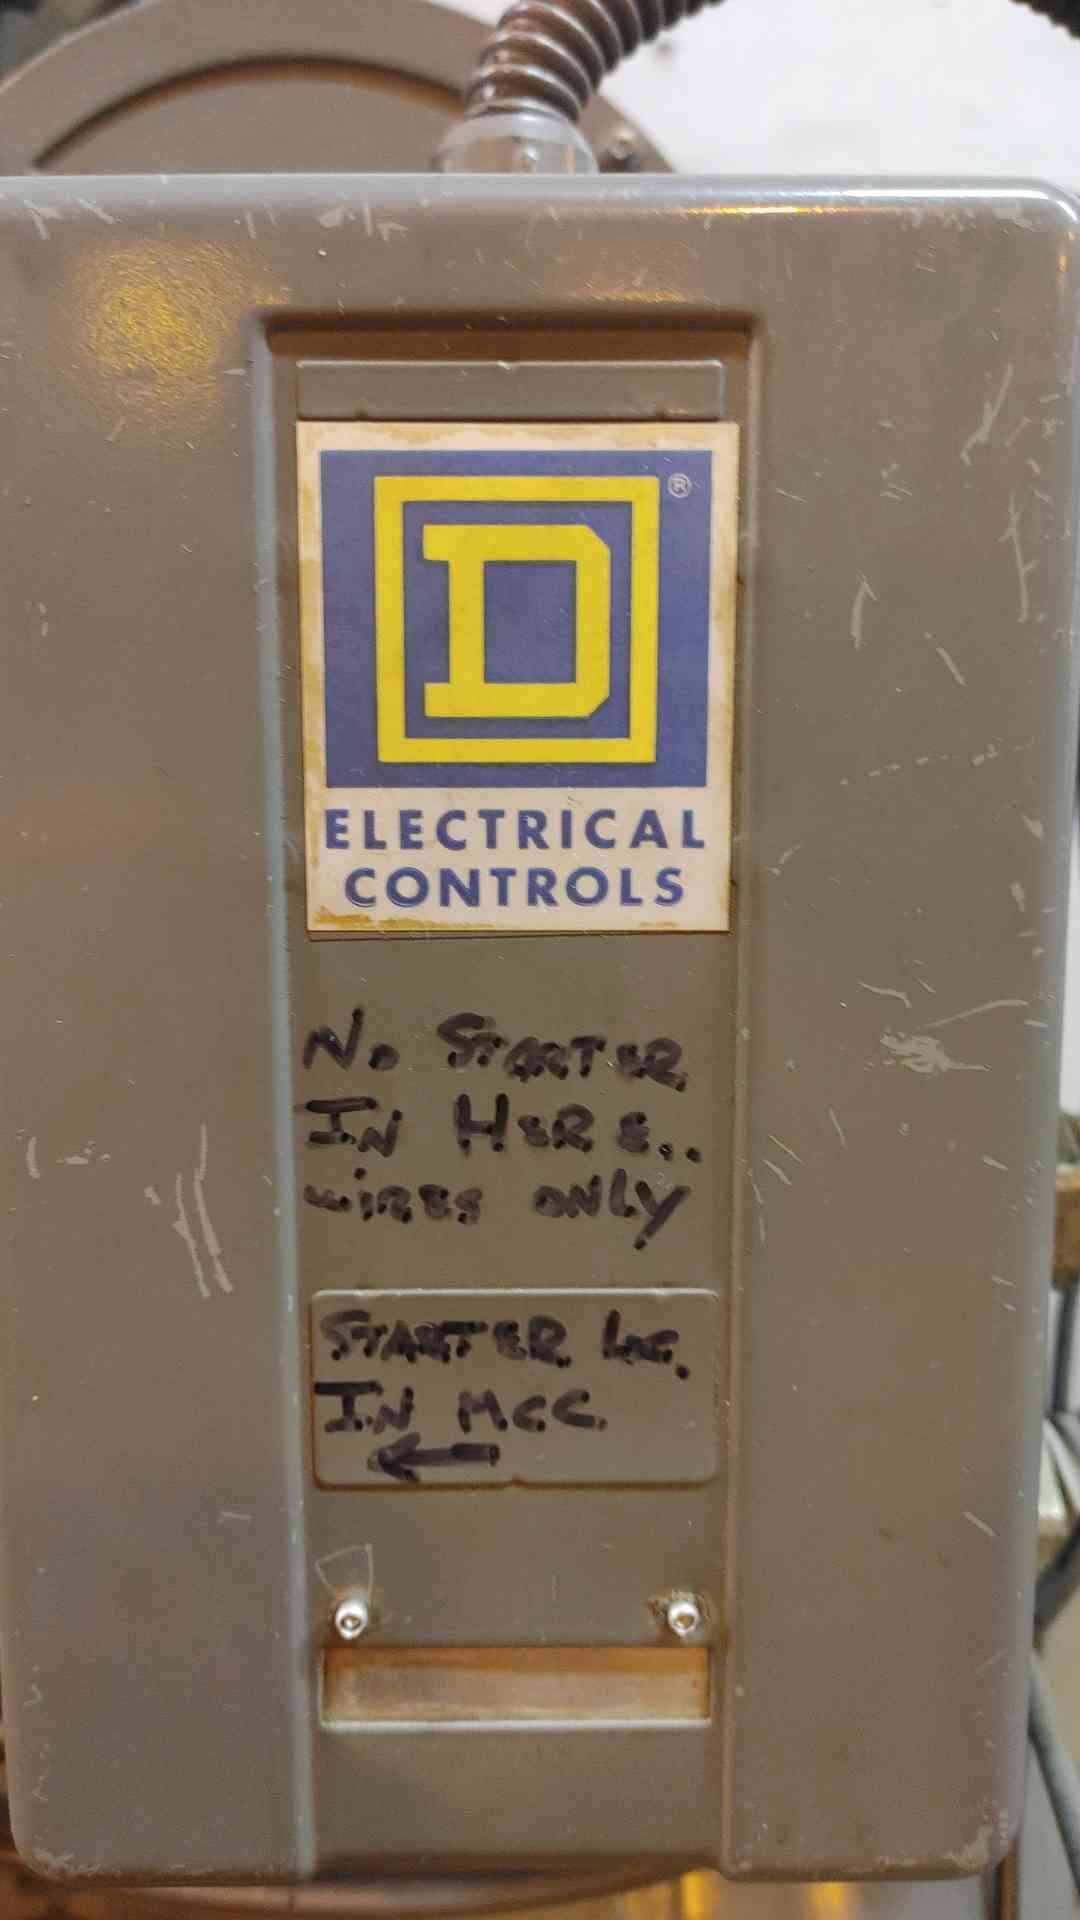 D ®
ELECTRICAL
CONTROLS
No STARTER
IN HERE..
WIRES ONLY
STARTER Loc.
IN MCC
←